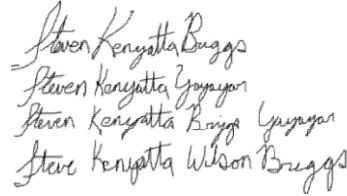 Steven Kenyatta Buggs
Steven Kenyatta Yayayan
Steven Kenyatta Briggs Yayayan
Steve Kenyatta Wilson Briggs